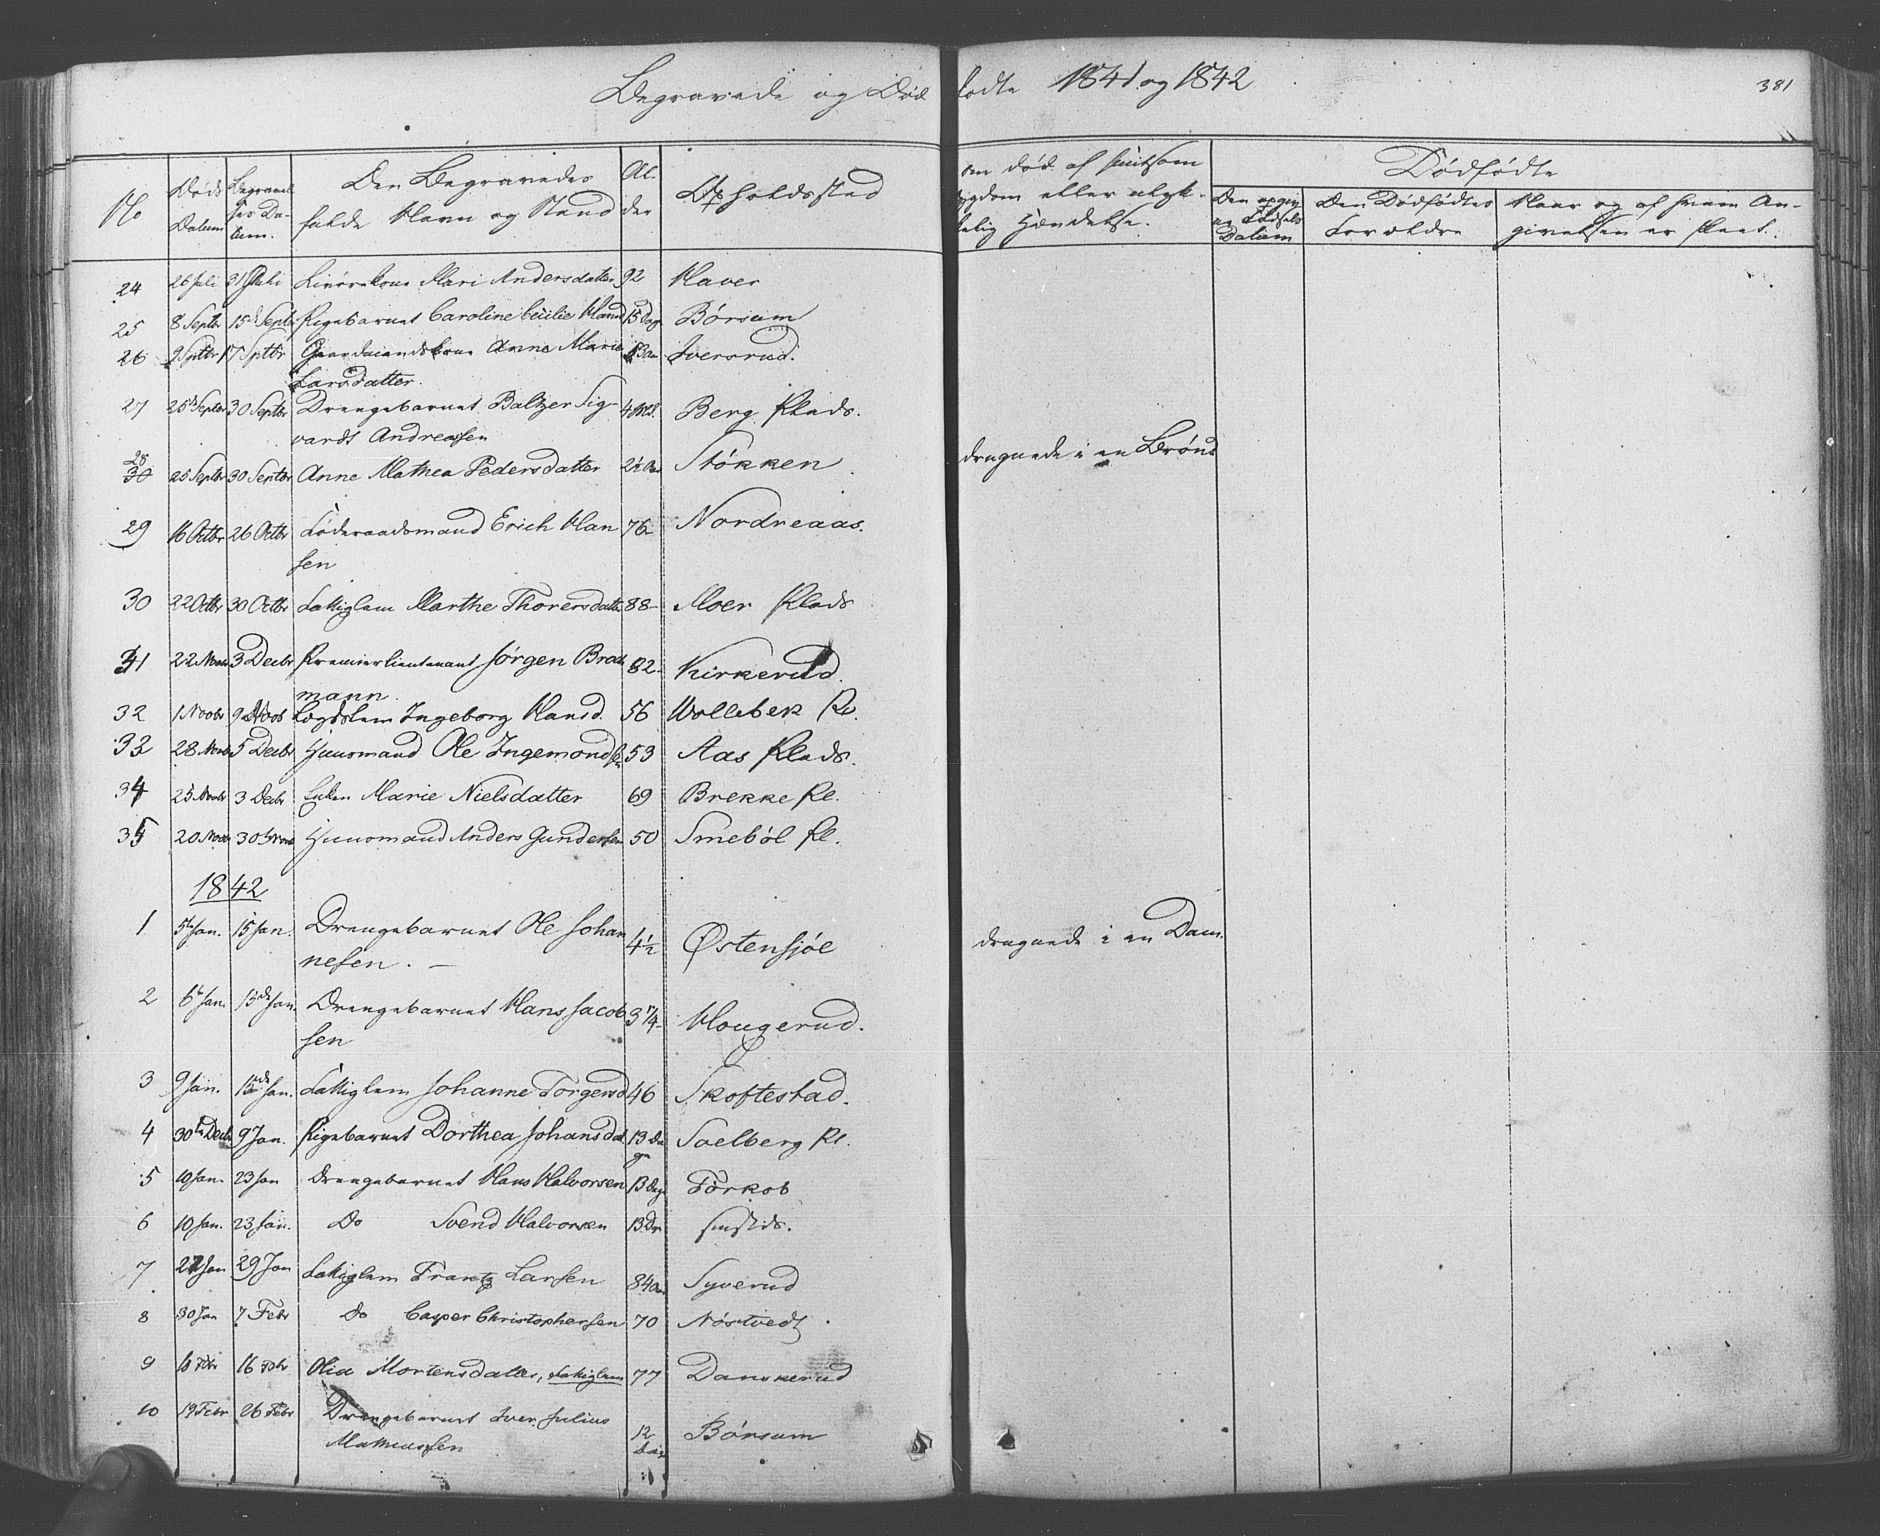 Begravede og Død fødte 1841 og 1842
381
No
Døds Datum
Begravelses Datum.
Den Begravedes fulde Navn og Stand
Alder
Opholdssted
om død af smitsom Sygdom eller ulyk- kelig Hændelse.
Dødfødte
Den opgivne Fødsels Datum
Den Dødfødtes Forældre
Naar og af hvem An- givelsen er skeet.
24 26 Juli 31 Juli Mari Andersdatter 92 Haver
25 8 Septbr 15de Septbr Pigebarnet Caroline Cecilie 15 Dag Børsum
26 9 Septbr 17 Septbr Gaardmandskone Anne Marie Iversrud.
Larsdatter.
27 25de Septbr 30 Septbr Drengebarnet Baltzer Sig- 4 Berg Plads.
vardt Andreassen
28 30 25 Septbr 30 Septbr Anne Mathea Pedersdatter 2½ Aar Støkken druknede i en Brønd
29 16 Octbr 26 Octbr Føderaadsmand Erich Han 76 Nordreaas.
sen
30 22 Octbr 30 Octbr Fattiglem Marthe Thorersdatter 88 Moer Plads
31 22 Novbr 3 Decbr Premierlieutenant Jørgen Brock 82 Kirkerud.
mann.
32 1 Novbr 9 Novb Lægdslem Ingeborg Hansd. 56 Wollebek Pl.
33 28 Novbr 5 Decbr Huusmand Ole Ingemondsen 53 Aas Plads.
34 25 Novbr 3 Decbr Enken Marie Nielsdatter 69 Brekke Pl.
35 20 Novbr 30 Novbr Huusmand Anders Gundersen 50 Smebøl Pl.
1842
1 5te Jan. 15 Jan. Drengebarnet Ole Johan 4½ Østensjøe druknede i en Dam.
nesen.
2 6te Jan. 13de Jan. Drengebarnet Hans Jacob 3¼ Hougerud.
sen
3 9 Jan. 15de Jan. Fattiglem Johanne Torgersd 46 Skoftestad.
4 30te Decbr 9 Jan. Pigebarnet Dorthea Johansdat. 13 Da Solberg Pl.
ge
5 10 Jan. 23 Jan Drengebarnet Hans Halvorsen 13 Dage Forkob
6 10 Jan. 23 Jan. Do Svend Halvorsen 13 Da sinstds.
7 22 Jan 29 Jan Fattiglem Frantz Larsen 84 Aar Syverud
8 30 Jan 7 Febr Do Casper Christophersen 70 Nøstvedt
9 10 Febr 16 Febr Olia Mortensdatter, Fattiglem 77 Danskerud
10 19 Febr 26 Febr Drengebarnet Iver Julius 12 Dage Børsum
Mathiassen